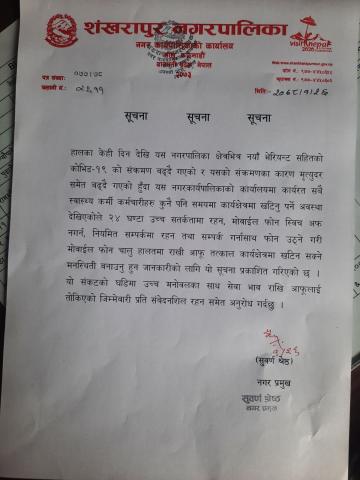 शंखरापुर नगरपालिका
नगर कार्यपालिकाको कार्यालय
साँखु, काठमाडौं
नेपाल
२०७३
visit Nepal
2020
पत्र संख्या: ०७७।७८
चलानी नं.:
मिति:- २०७८।१।२६
सूचना सूचना सूचना
हालका केही दिन देखि यस नगरपालिका क्षेत्रभित्र नयाँ भेरियन्ट सहितको
कोभिड-१९ को संक्रमण बढ्दै गएको र यसको संक्रमणका कारण मृत्युदर
समेत बढ्दै गएको हुँदा यस नगरकार्यपालिकाको कार्यालयमा कार्यरत सबै
स्वास्थ्य कर्मी कर्मचारीहरु कुनै पनि समयमा कार्यक्षेत्रमा खटिनु पर्ने अवस्था
देखिएकोले २४ घण्टा उच्च सतर्कतामा रहन, मोवाईल फोन स्विच अफ
नगर्न, नियमित सम्पर्कमा रहन तथा सम्पर्क गर्नासाथ फोन उठ्ने गरी
मोवाईल फोन चालु हालतमा राखी आफू तत्काल कार्यक्षेत्रमा खटिन सक्ने
मनस्थिती बनाउनु हुन जानकारीको लागि यो सूचना प्रकाशित गरिएको छ ।
यो संकटको घडिमा उच्च मनोवलका साथ सेवा भाव राखि आफूलाई
तोकिएको जिम्मेवारी प्रति संवेदनशिल रहन समेत अनुरोध गर्दछु ।
(सुवर्ण श्रेष्ठ)
नगर प्रमुख
सुवर्ण श्रेष्ठ
नगर प्रमुख